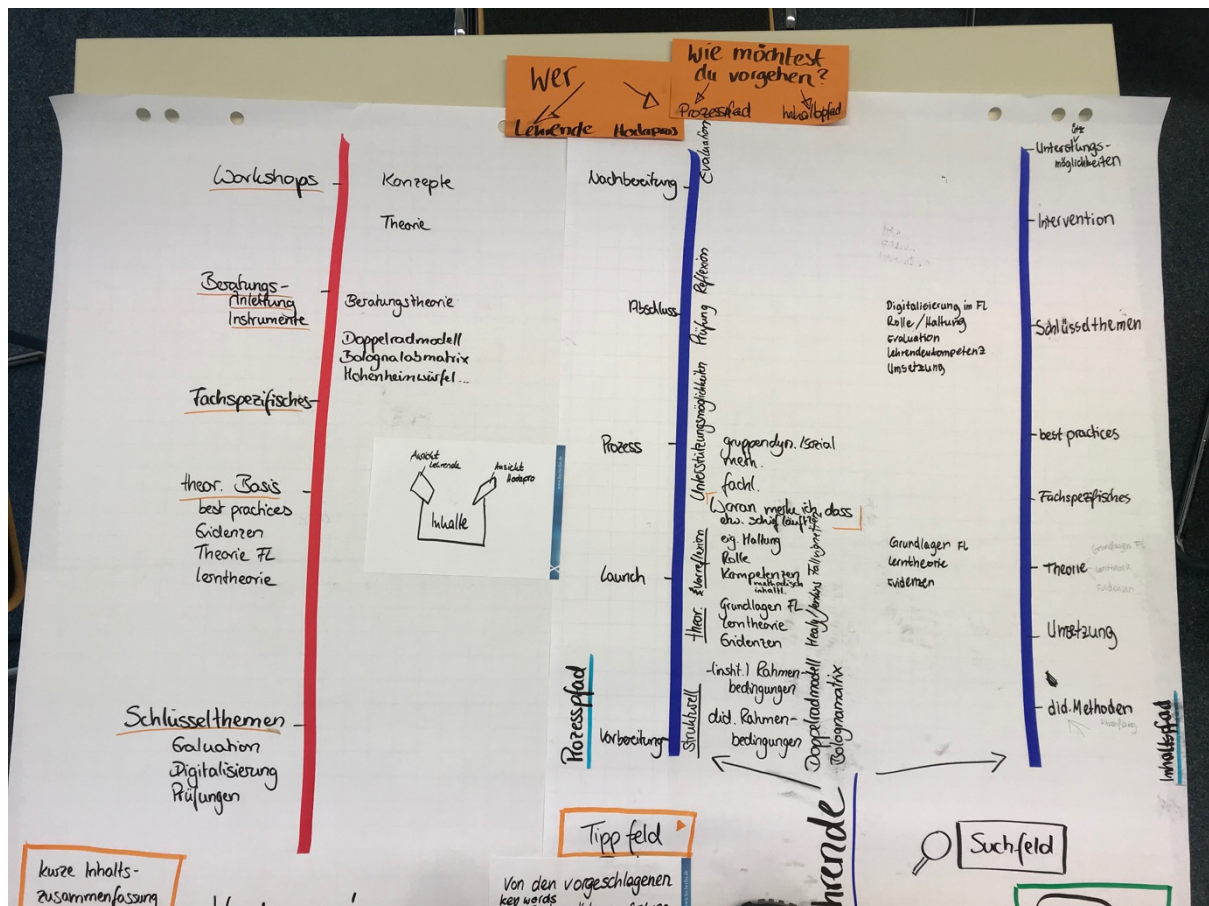 Wer
Lehrende Hodapros
Wie möchtest
du vorgehen?
Prozesspfad Inhaltspfad
Workshops
Konzepte
Theorie
Beratungs-
Anleitung
Instrumente
Beratungstheorie
Doppelradmodell
Bolognalabmatrix
Hohenheimwürfel...
Fachspezifisches
Ansicht
Lehrende
Ansicht
Hodapro
Inhalte
theor. Basis
best practices
Evidenzen
Theorie FL
Lerntheorie
Schlüsselthemen
Evaluation
Digitalisierung
Prüfungen
kurze Inhalts-
zusammenfassung
Nachbereitung
Evaluation
Abschluss
Prüfung Reflexion
Prozess
Unterstützungsmöglichkeiten
gruppendyn./sozial
meth.
fachl.
Woran merke ich, dass
etw. schief läuft?
Launch
theor. &
eig. Haltung
Rolle
Kompetenzen
methodisch
inhaltl.
Grundlagen FL
Lerntheorie
Evidenzen
Vorbereitung
strukturell
-(instit.) Rahmen-
bedingungen
did. Rahmen-
bedingungen
Prozesspfad
Doppelradmodell Healy/Jenkins
Bolognamatrix
Tippfeld
Von den vorgeschlagenen
key words
hrende
Suchfeld
Digitalisierung im FL
Rolle/Haltung
Evaluation
Lehrendenkompetenz
Umsetzung
Grundlagen FL
Lerntheorie
Evidenzen
möglichkeiten
Intervention
Schlüsselthemen
best practices
Fachspezifisches
Theorie
Grundlagen FL
Lerntheorie
Evidenzen
Umsetzung
did. Methoden
Inhaltspfad